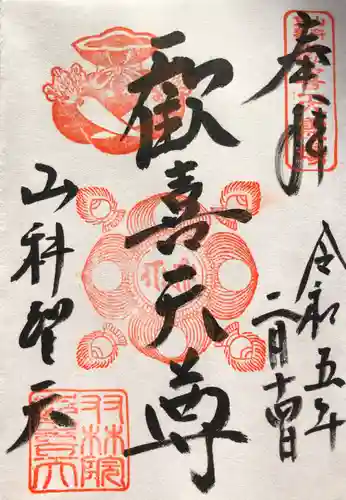 奉拝
令和五年
二月十四日
歓喜天尊
山科聖天
双林院